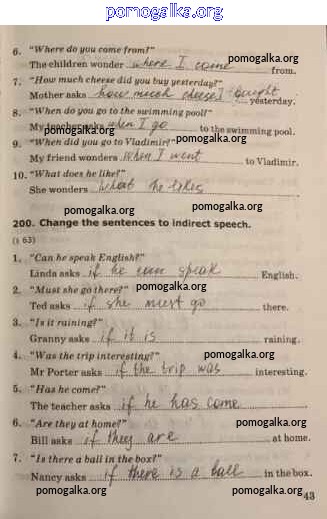 pomogalka.org
6. "Where do you come from?"
pomogalka.org
The children wonder where I come from.
7. "How much cheese did you buy yesterday?"
Mother asks how much cheese I bought yesterday.
pomogalka.org
8. "When do you go to the swimming pool?"
My teacher asks when I go to the swimming pool.
pomogalka.org
9. "When did you go to Vladimir?"
pomogalka.org
My friend wonders when I went to Vladimir.
10. "What does he like?"
pomogalka.org
She wonders what he likes
pomogalka.org
200. Change the sentences to indirect speech.
(§ 63)
pomogalka.org
1. "Can he speak English?"
Linda asks if he can speak English.
2. "Must she go there?"
pomogalka.org
Ted asks if she must go there.
3. "Is it raining?"
pomogalka.org
Granny asks if it is raining.
4. "Was the trip interesting?"
pomogalka.org
Mr Porter asks if the trip was interesting.
5. "Has he come?"
pomogalka.org
The teacher asks if he has come
6. "Are they at home?"
pomogalka.org
Bill asks if they are at home.
7. "Is there a ball in the box?"
pomogalka.org
Nancy asks if there is a ball in the box.
pomogalka.org
pomogalka.org
43